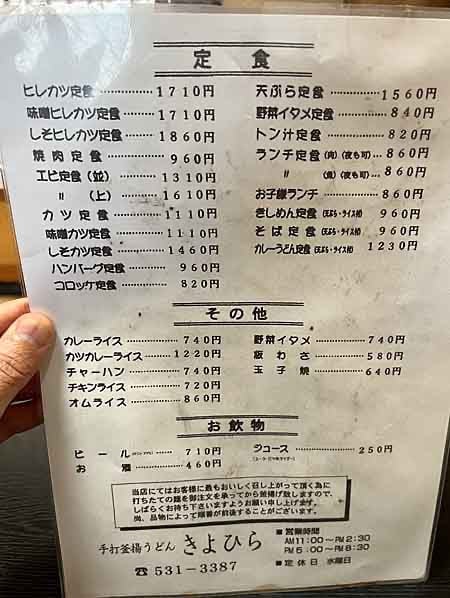 定食
ヒレカツ定食 ………… 1710円
味噌ヒレカツ定食 …… 1710円
しそヒレカツ定食 …… 1860円
焼肉定食 ………… 960円
エビ定食(並) ………… 1310円
〃 (上) ………… 1610円
カツ定食 ………… 1110円
味噌カツ定食 ………… 1110円
しそカツ定食 ………… 1460円
ハンバーグ定食 ………… 960円
コロッケ定食 ………… 820円
天ぷら定食 ………… 1560円
野菜イタメ定食 ………… 840円
トン汁定食 ………… 820円
ランチ定食(肉)(夜も可)… 860円
〃 (魚)(夜も可)… 860円
お子様ランチ ………… 860円
きしめん定食(天ぷら・ライス付) 960円
そば定食(天ぷら・ライス付) 960円
カレーうどん定食(天ぷら・ライス付) 1230円
その他
カレーライス ………… 740円
カツカレーライス ………… 1220円
チャーハン ………… 740円
チキンライス ………… 720円
オムライス ………… 860円
野菜イタメ ………… 740円
板わさ ………… 580円
玉子焼 ………… 640円
お飲物
ビール ……… 710円
お酒 ………… 460円
ジュース ………… 250円
当店にてはお客様に最もおいしく召し上がって頂く為に
打ちたての麺を御注文を承ってから釜揚げ致しますので、
しばらくお待ち下さいますようお願い申し上げます。
尚、品物によって順番が前後することがございます。
手打釜揚うどん きよひら
☎ 531-3387
■ 営業時間
AM11:00〜PM2:30
PM5:00〜8:30
■ 定休日 水曜日